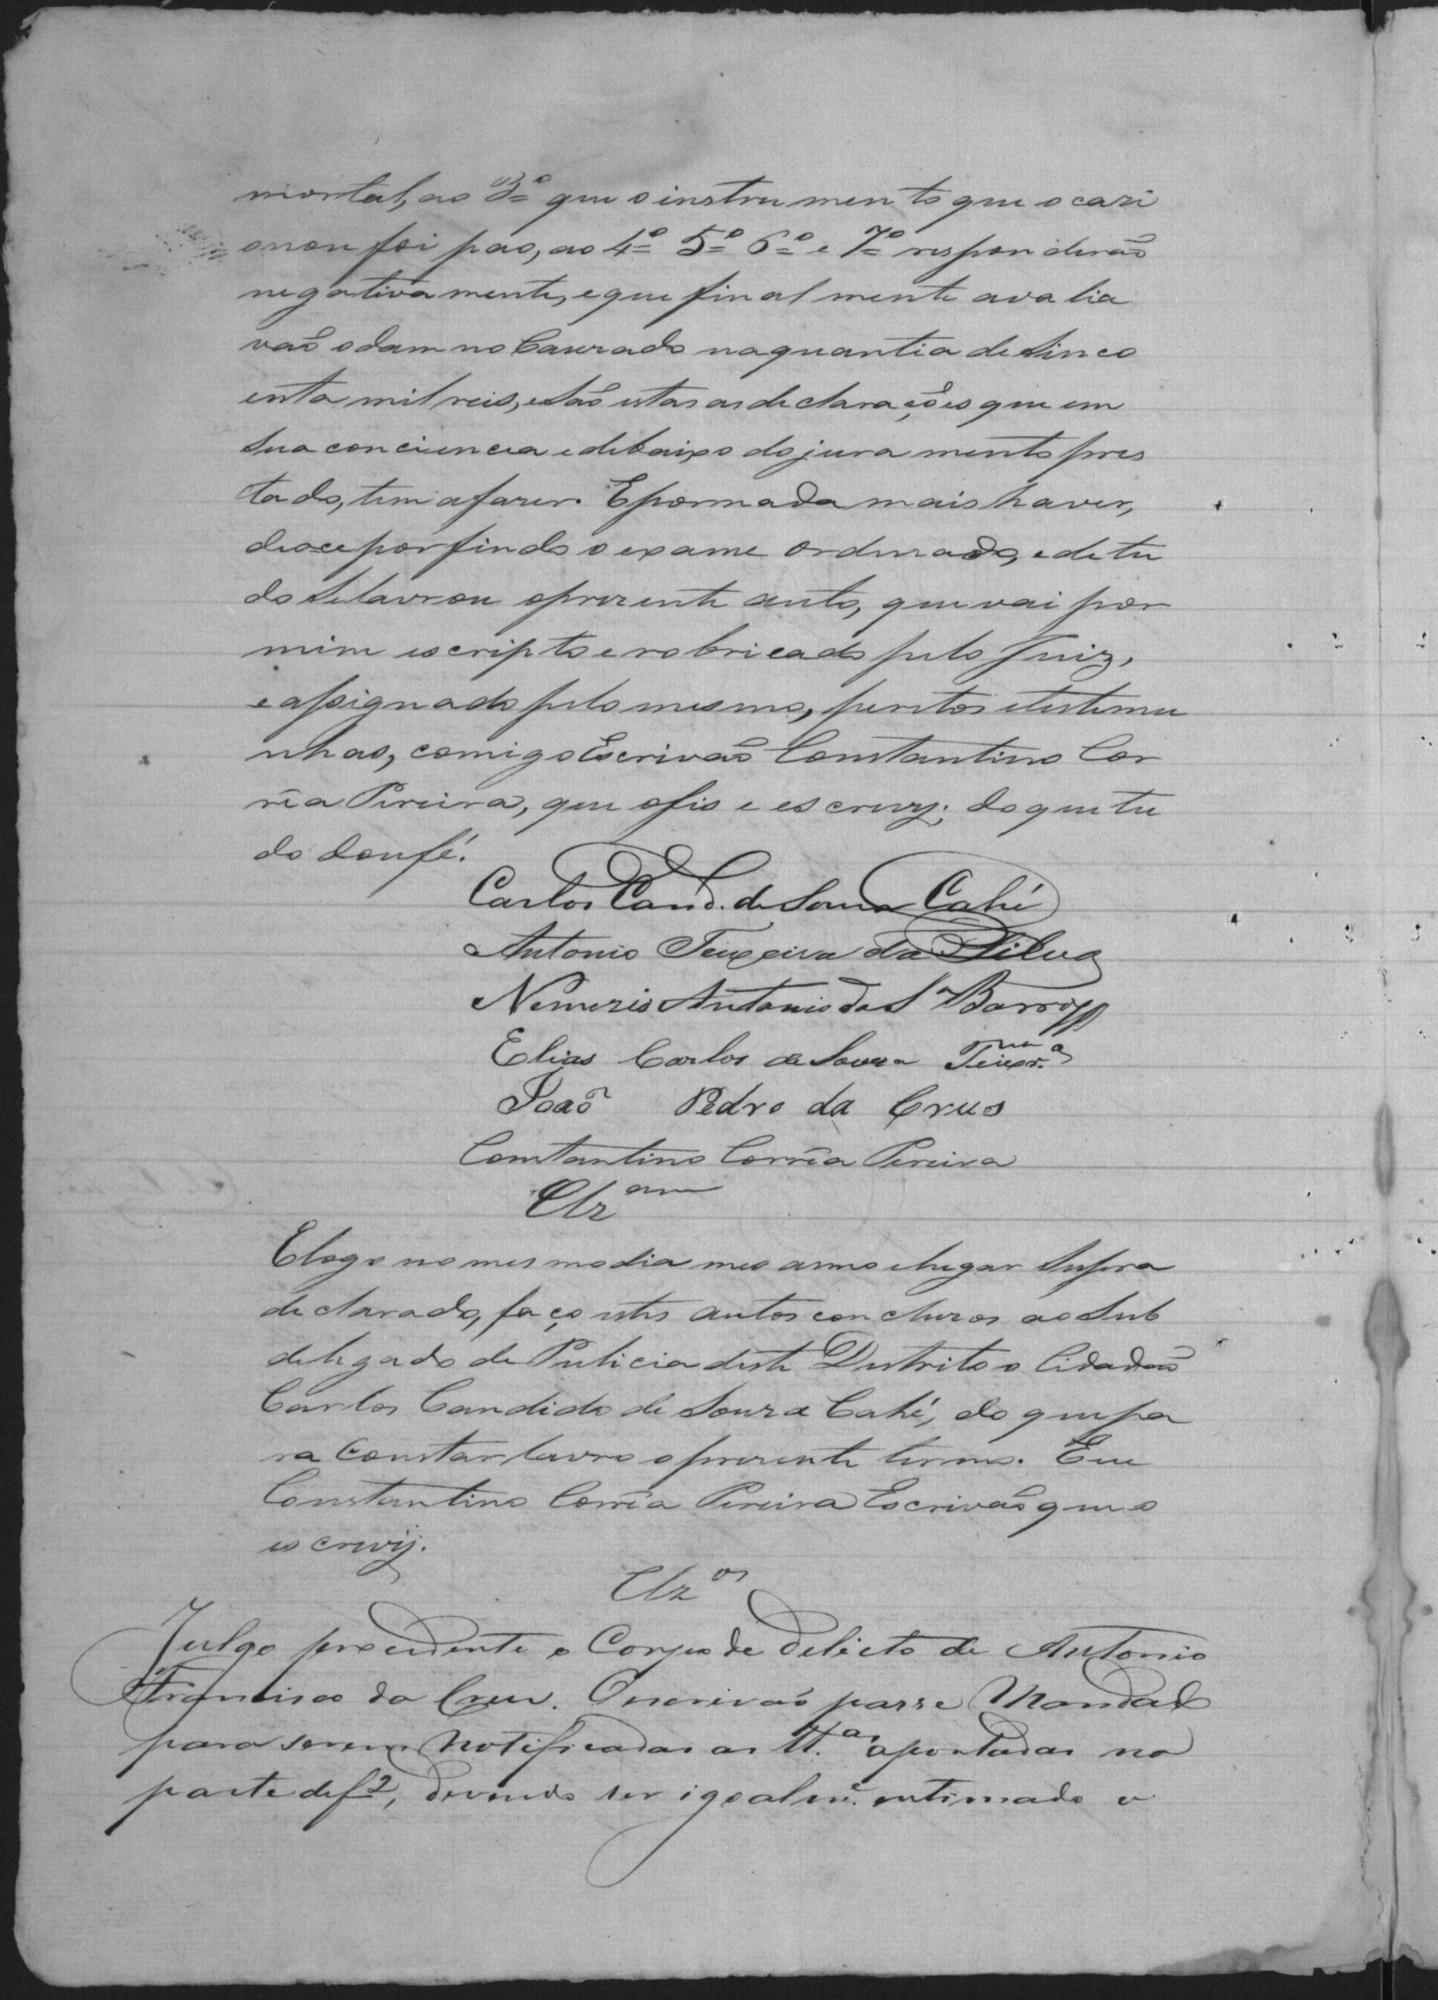 mortal, ao 3º que o instrumento que ocazi
onou foi pao, ao 4º 5º 6º e 7º responderão
negativamente, e que finalmente avalia
vaõ o damno Cauzado na quantia de Sinco
enta mil reis, e São estas as declarações que em
Sua conciencia e debaixo do juramento pres
tado, tem a fazer. E por nada mais haver,
deoce por findo o exame ordenado, e de tu
do Se lavrou o prezente auto, que vai por
mim escripto e robricado pelo Juiz,
e assignado pelo mesmo, peritos e testemu
nhas, comigo Escrivaõ Constantino Cor
rêa Pereira, que o fis e escrevy; do que tu
do dou fé.
Carlos Cand. de Souza Cahé
Antonio Teixeira da Silva
Nemezio Antonio dos Barros
Elias Carlos de Souza
João Pedro da Crus
Constantino Corrêa Pereira
Clzam
E logo no mesmo dia mes anno e lugar Supra
declarado, faço estes autos concluzos ao Sub
delegado de Pulicia deste Destrito o Cidadaõ
Carlos Candido de Souza Cahé, do que pa
ra constar lavro o prezente termo. Eu
Constantino Corrêa Pereira Escrivaõ que o
escrevij.
Clzos
Julgo procedente o Corpo de Delicto de Antonio
Francisco da Cruz. O escrivaõ passe Mandado
para serem notificadas as tt.as apontadas na
parte de f 2, devendo ser igoalm.e entimado o